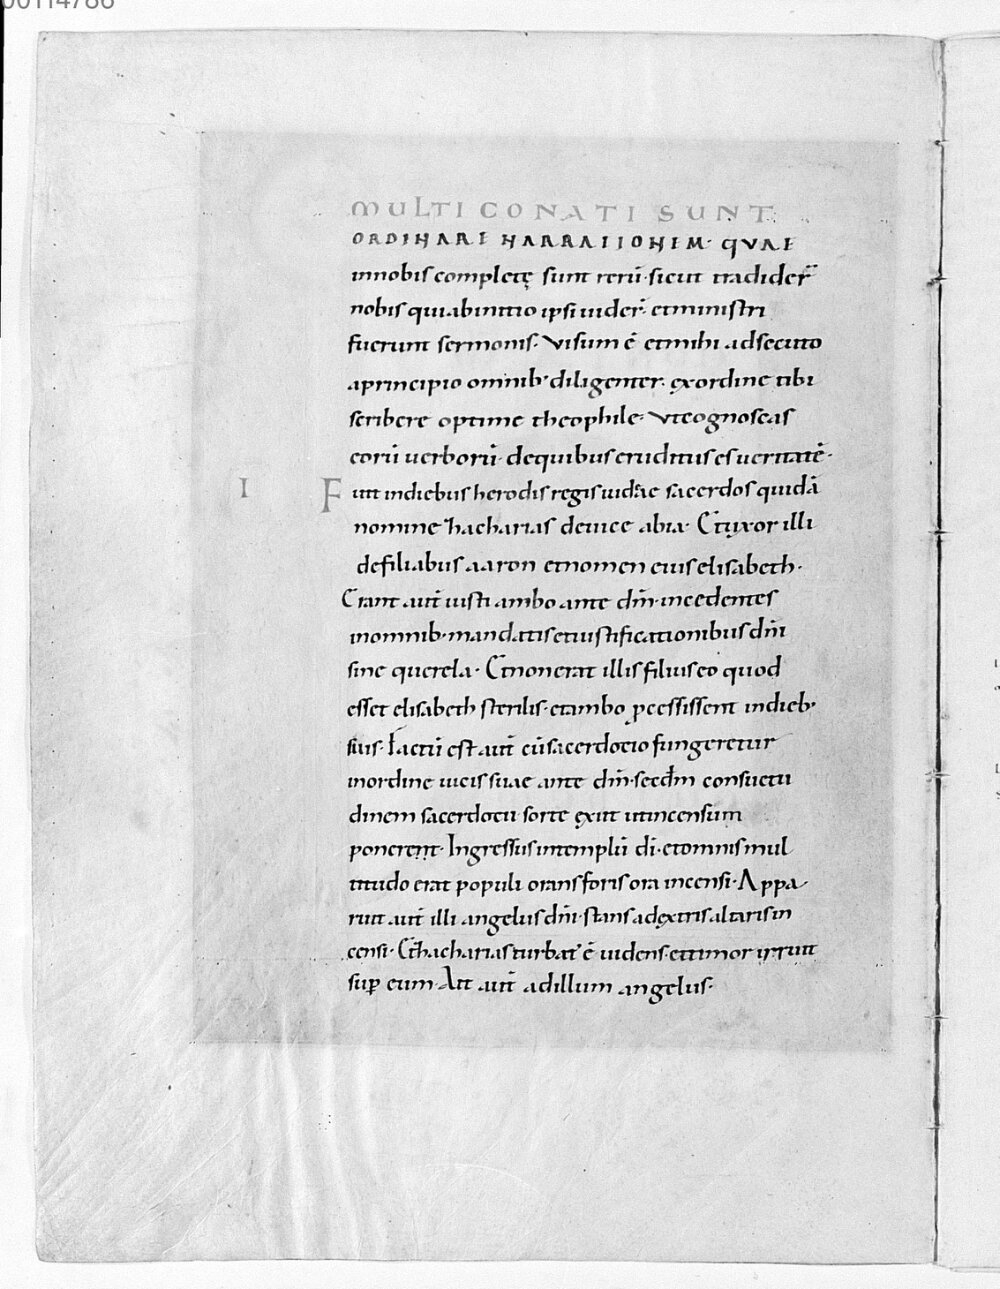 00114786
MULTI CONATI SUNT
ORDINARE NARRATIONEM· QUAE
innobis complete̜ sunt rerū· sicut tradider̄
nobis quiabinitio ipsi uider̄· etministri
fuerunt sermonis· Visum ē etmihi adsecuto
aprincipio omnib· diligenter· exordine tibi
scribere optime theophile· Vtcognoscas
eorū uerborū· dequibus eruditus es ueritatē·
I F uit indiebus herodis regis iudae sacerdos quidā
nomine zacharias deuice abia· Et uxor illi
defiliabus aaron etnomen eius elisabeth·
Erant aut̄ iusti ambo ante dm̄· incedentes
inomnib· mandatis etiustificationibus dn̄i
sine querela· Etnonerat illis filius eo quod
esset elisabeth sterilis· etambo p̄cessissent indieb·
suis· Factū est aut̄ cū sacerdotio fungeretur
inordine uicis suae ante dm̄· secdm̄ consuetu
dinem sacerdotii· sorte exiit utincensum
poneret· Ingressus intemplū dn̄i· etomnis mul
titudo erat populi orans foris ora incensi· Appa
ruit aut̄ illi angelus dn̄i· stans adextris altaris in
censi· Et zacharias turbat᾿ ē uidens· ettimor irruit
sup̄ eum· Ait aut̄ adillum angelus·